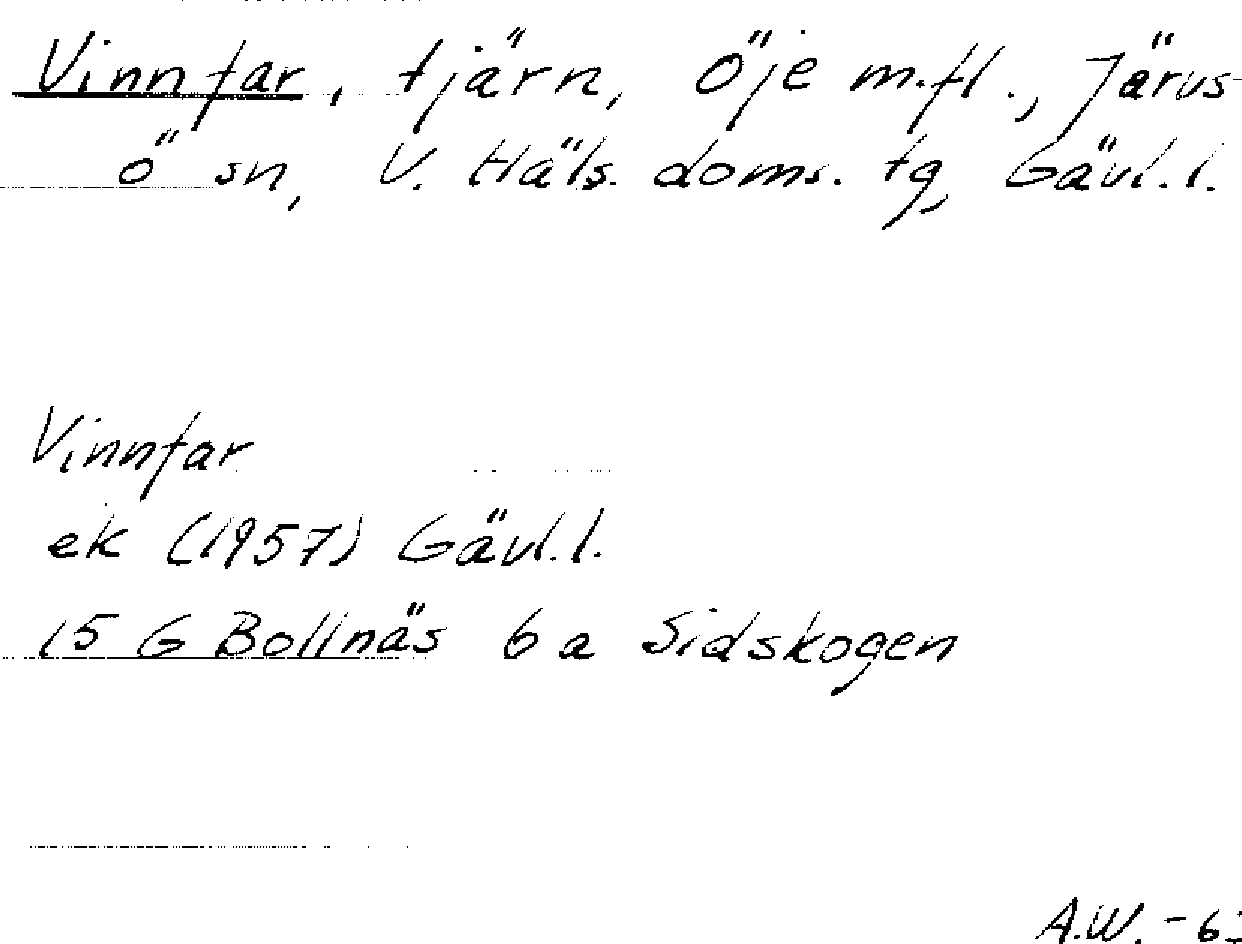 Vinnfar, tjärn, Öje m.fl., Järvs-
ö sn, V. Häls. doms. tg, Gävl.l.
Vinnfar
ek (1957) Gävl.l.
15 G Bollnäs 6 a Sidskogen
A.W. -